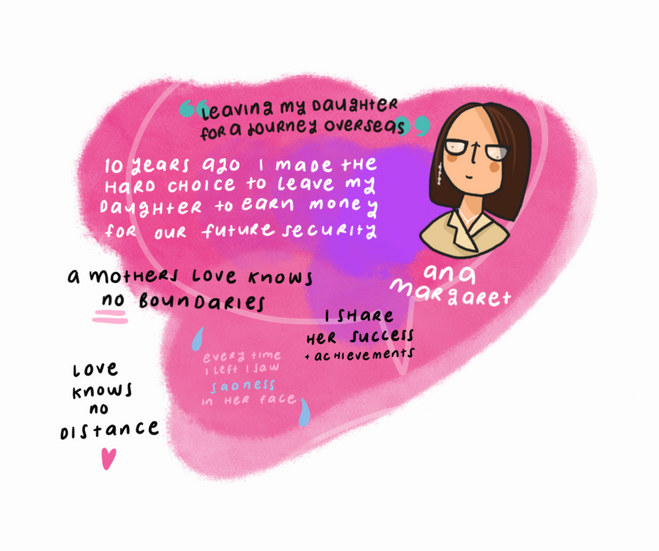 “Leaving my Daughter
for a Journey overseas”
10 years ago I made the
Hard choice to leave my
Daughter to earn money
for our future security
ana
margaret
a mothers Love knows
no Boundaries
I share
Her success
+ achievements
every time
I left I saw
sadness
in Her face
Love
knows
no
Distance